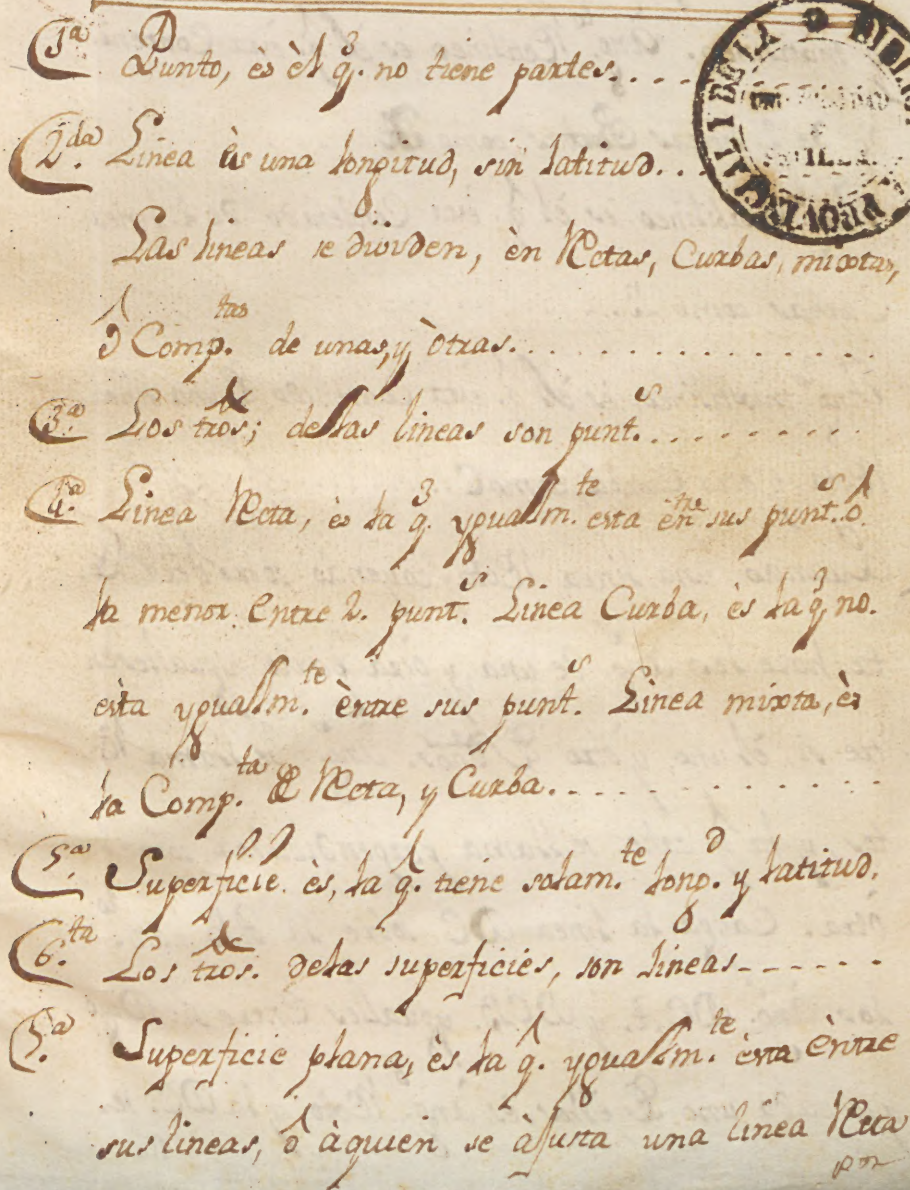 1ª Punto, ès èl q. no tiene partes....
2da. Linea ês una longitud, sin latitud...
Las lineas se dividen, èn Rectas, Curbas, mixtas,
ô Comp.tas de unas, y òtras...............
3ª Los tros; de las lineas son punt.s...........
4ª Linea Recta, ès la q. ygualm.te esta entre sus punt.s ô
la menor Entre 2. punt.s Linea Curba, ès la q. no.
èsta ygualm.te èntre sus punt.s Linea mixta, ès
la Comp.ta de Recta, y Curba..............
5ª Superficie ès, la q. tiene solam.te long.d y latitud.
6.ta Los tros. delas superficies, son lineas.......
7ª Superficie plana, ès la q. ygualm.te èsta èntre
sus lineas, ô àquien se àjusta una linea Recta
por
PROVINCIAL Y DE LA
SEVILLA